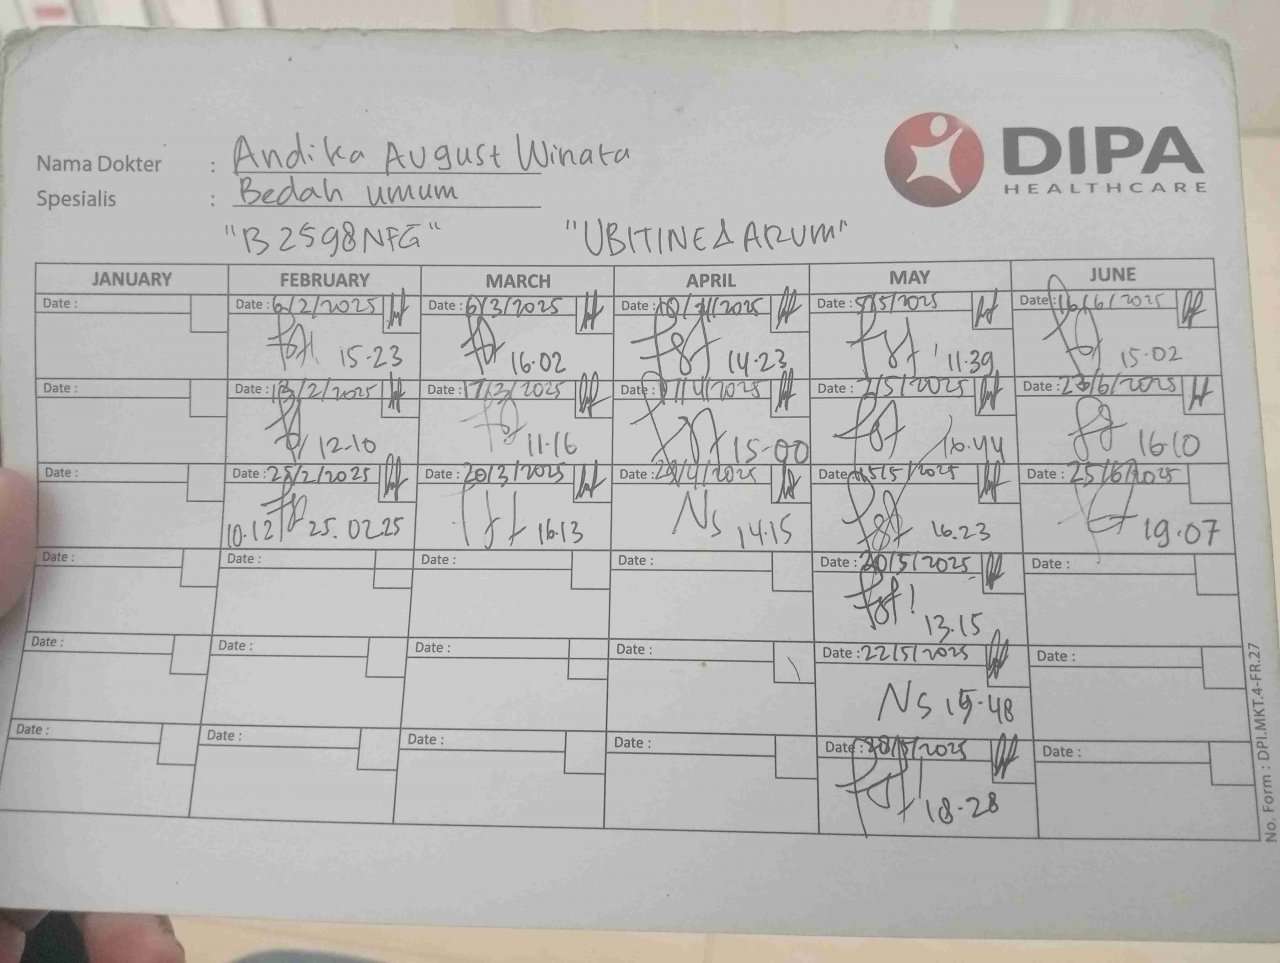 DIPA
HEALTHCARE
Nama Dokter : Andika August Winata
Spesialis : Bedah umum
"B2598NFG" "UBITINE & ARUM"
JANUARY FEBRUARY MARCH APRIL MAY JUNE
Date : Date : 6/2/2025 Date : 6/3/2025 Date : /4/2025 Date : 5/5/2025 Date : 16/6/2025
15-23 16.02 14-23 11.39 15-02
Date : Date : 13/2/2025 Date : 17/3/2025 Date : /4/2025 Date : /5/2025 Date : 23/6/2025
12-10 11-16 15-00 16.44 1610
Date : Date : 25/2/2025 Date : 20/3/2025 Date : /4/2025 Date : 15/5/2025 Date : 25/6/2025
10.12 25.02.25 16.13 Ns 14.15 16.23 19.07
Date : Date : Date : Date : Date : 20/5/2025 Date :
13.15
Date : Date : Date : Date : Date : 22/5/2025 Date :
Ns 15-48
Date : Date : Date : Date : Date : /5/2025 Date :
18-28
No. Form : DPI.MKT.4-FR.27